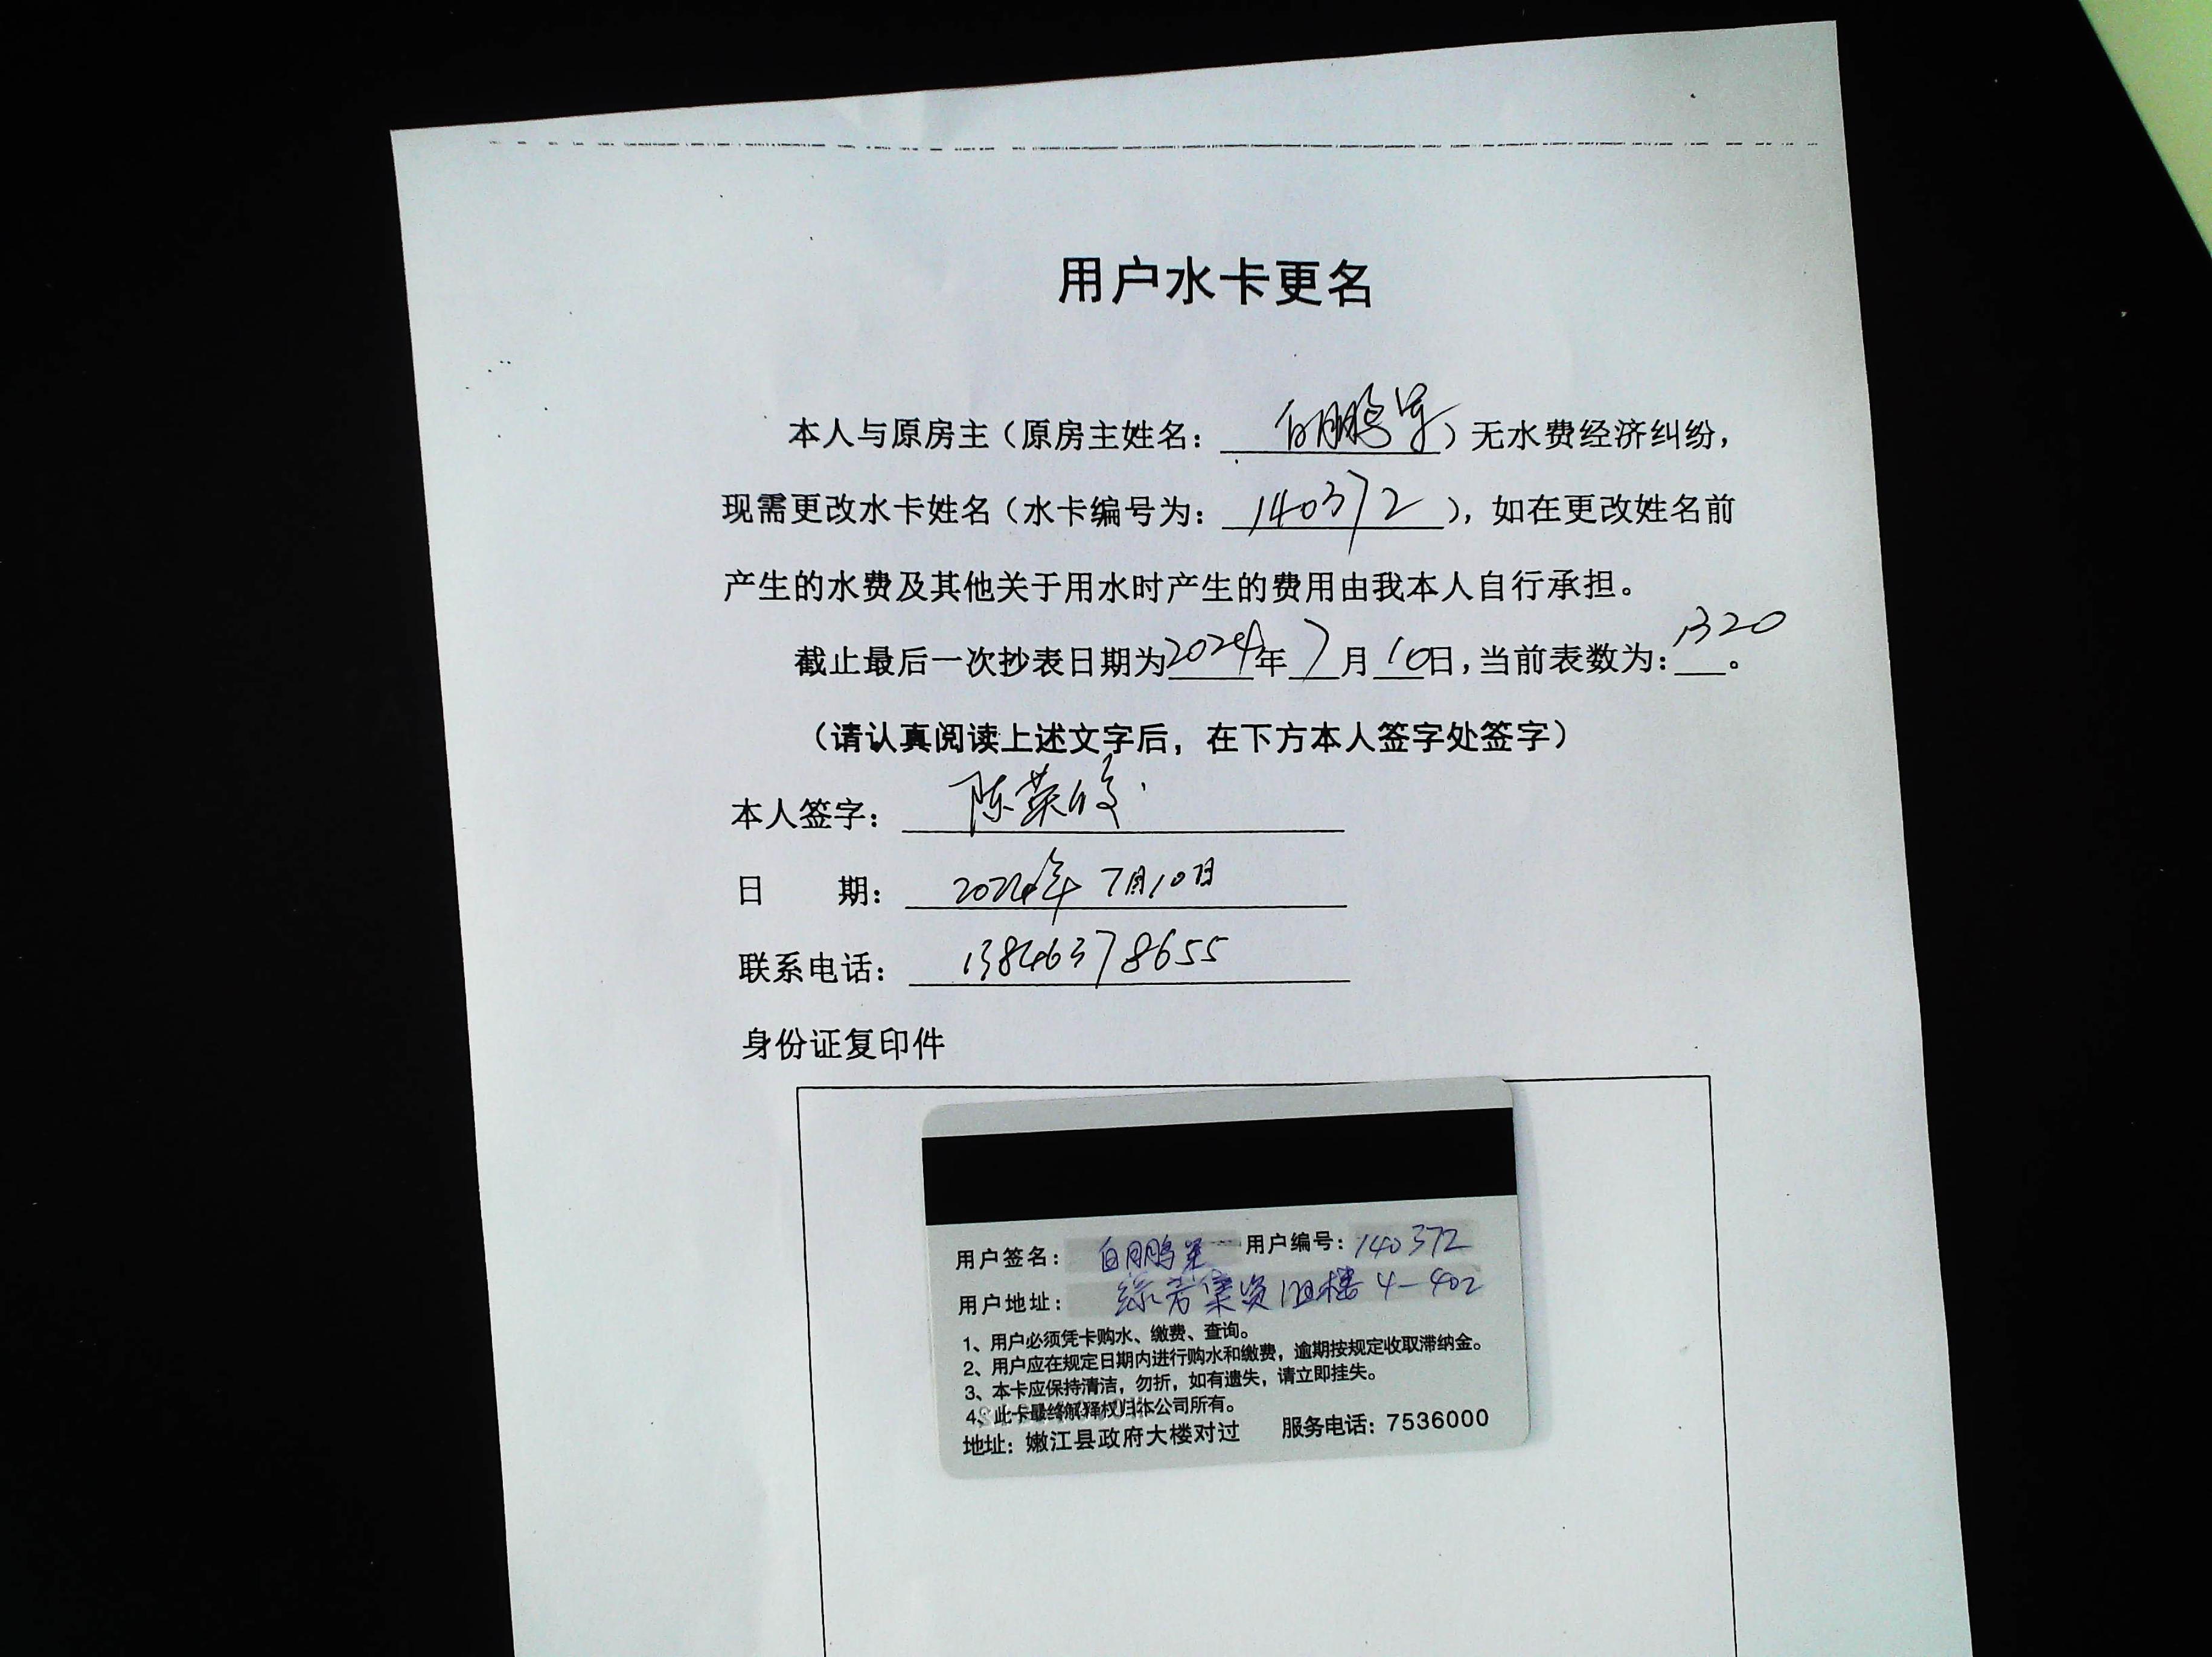 用户水卡更名
本人与原房主（原房主姓名：白鹏军）无水费经济纠纷，
现需更改水卡姓名（水卡编号为：140372），如在更改姓名前
产生的水费及其他关于用水时产生的费用由我本人自行承担。
截止最后一次抄表日期为2024年7月10日，当前表数为：1320。
（请认真阅读上述文字后，在下方本人签字处签字）
本人签字：陈英俊
日　　期：2024年7月10日
联系电话：13846378655
身份证复印件
用户签名：白鹏军 用户编号：140372
用户地址：集资 楼 4-402
1、用户必须凭卡购水、缴费、查询。
2、用户应在规定日期内进行购水和缴费，逾期按规定收取滞纳金。
3、本卡应保持清洁，勿折，如有遗失，请立即挂失。
4、此卡最终解释权归本公司所有。
地址：嫩江县政府大楼对过 服务电话：7536000